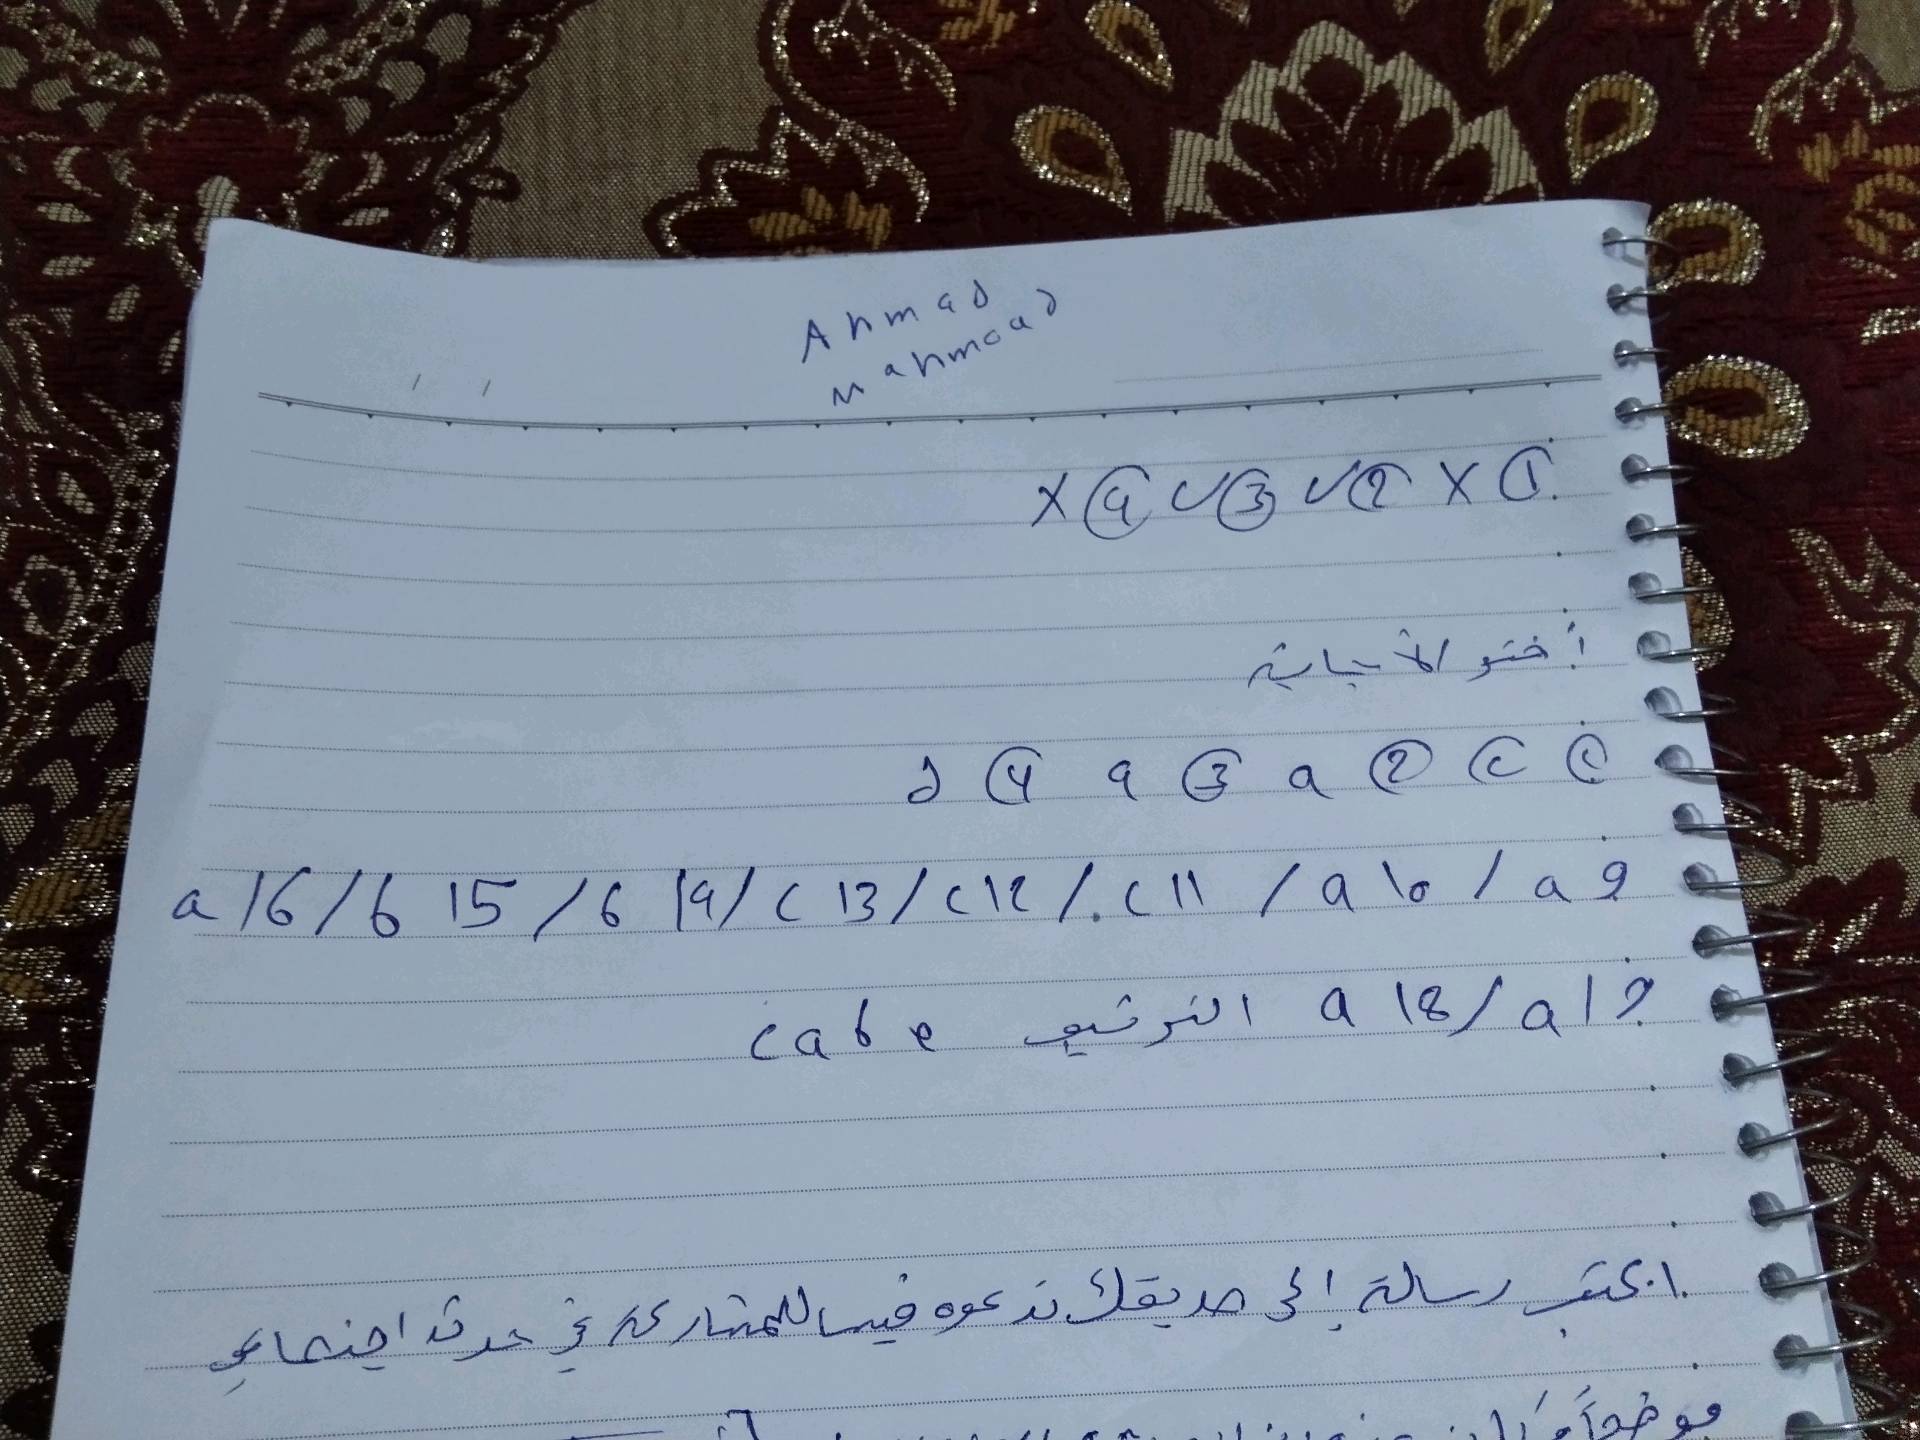 Ahmad
Mahmoad
① X ② ✓ ③ ✓ ④ X
أختر الأجابة
① ⓒ ② a ③ a ④ d
9 a / 10 a / 11 c / 12 c / 13 c / 14 b / 15 b / 16 a
17 a / 18 a الترتيب e b a c
اكتب رسالة إلى صديقك تدعوه فيها للمشاركة في حدث اجتماعي